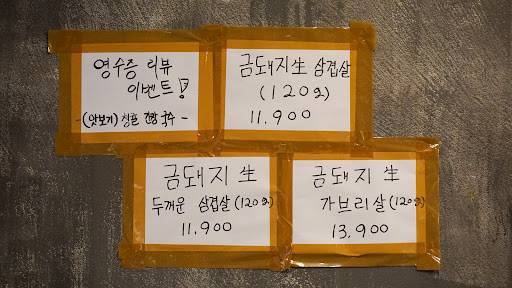 영수증 리뷰
이벤트!
-(맛보기) 쫄 간장 국수-
금돼지生 삼겹살
(120g)
11.900
금돼지 生
두꺼운 삼겹살(120g)
11,900
금돼지 生
가브리살(120g)
13,900